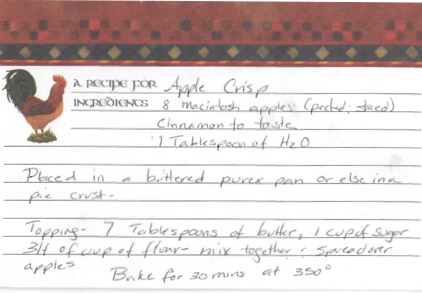 A RECIPE FOR Apple Crisp
INGREDIENTS 8 macintosh apples (peeled, sliced)
Cinnamon to taste
1 Tablespoon of H2O
Placed in a buttered purex pan or else in a
pie crust.
Topping- 7 Tablespoons of butter, 1 cup of sugar
3/4 of cup of flour- mix together & spread over
apples
Bake for 30 mins at 350°